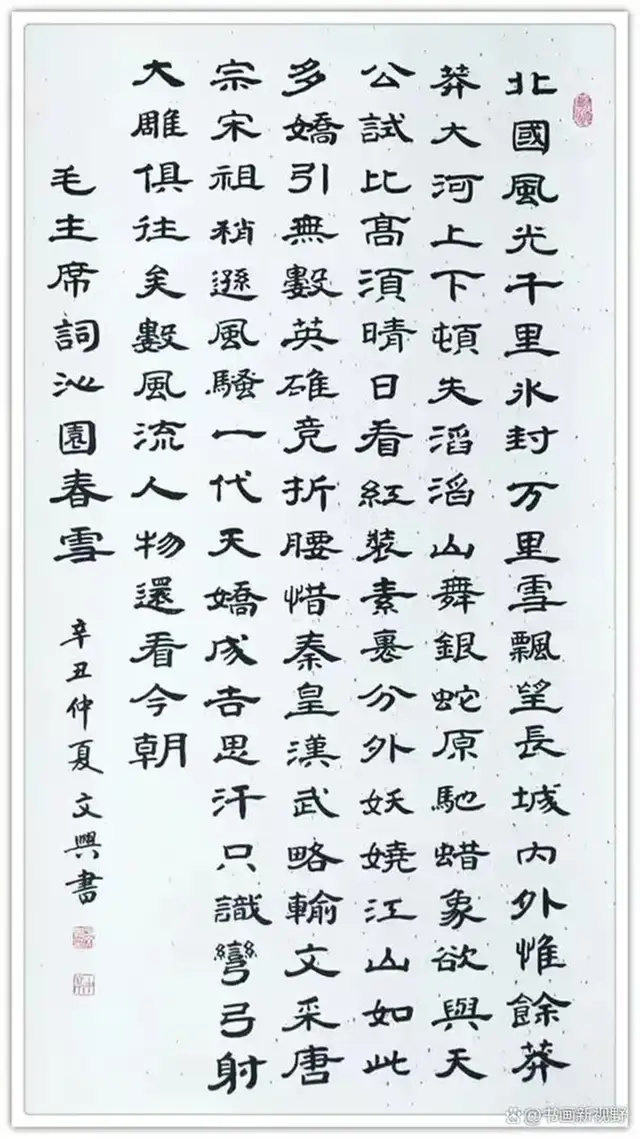 北國風光千里冰封万里雪飄望長城内外惟餘莽
莽大河上下頓失滔滔山舞銀蛇原馳蜡象欲與天
公試比髙須晴日看紅裝素裹分外妖嬈江山如此
多嬌引無數英雄竞折腰惜秦皇漢武略輸文采唐
宗宋祖稍遜風騷一代天嬌成吉思汗只識彎弓射
大雕俱往矣數風流人物還看今朝
毛主席詞沁園春雪
辛丑仲夏文興書
@书画新视野